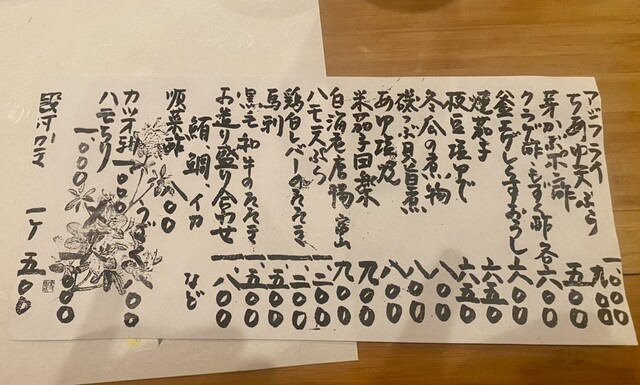 アジフライ 一、〇〇〇
ちあゆ天ぷら 九〇〇
芽かぶポン酢 五〇〇
クラゲ酢 もずく酢 各六〇〇
釜あげしらすおろし 六〇〇
焼茄子 六五〇
枝豆塩ゆで 六五〇
冬瓜の煮物 八〇〇
磯つぶ貝旨煮 八〇〇
あゆ塩焼 八〇〇
米茄子田楽 九〇〇
白海老唐揚 富山 九〇〇
ハモ天ぷら 一、二〇〇
鶏白レバーのたたき 一、二〇〇
馬刺 一、五〇〇
黒毛和牛のたたき 一、五〇〇
お造り盛り合わせ 一、八〇〇
鯛、イカ など
順菜酢 八〇〇
カツオ 一、〇〇〇
ハモちり 一、〇〇〇
一ケ 五〇〇